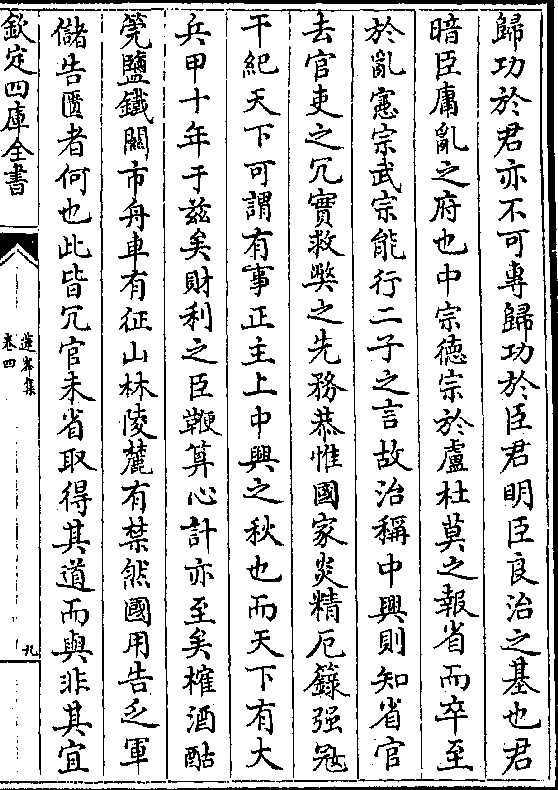 歸功於君亦不可專歸功於臣君明臣良治之基也君
暗臣庸亂之府也中宗德宗於盧杜莫之報省而卒至
於亂憲宗武宗能行二子之言故治稱中興則知省官
去官吏之冗實救獘之先務恭惟國家炎精厄籙强冦
干紀天下可謂有事正主上中興之秋也而天下有大
兵甲十年于兹矣財利之臣鞭算心計亦至矣榷酒酤
筦鹽鐵關市舟車有征山林陵麓有禁然國用告乏軍
儲告匱者何也此皆冗官未省取得其道而與非其宜
欽定四庫全書
蓮峯集
卷四
九